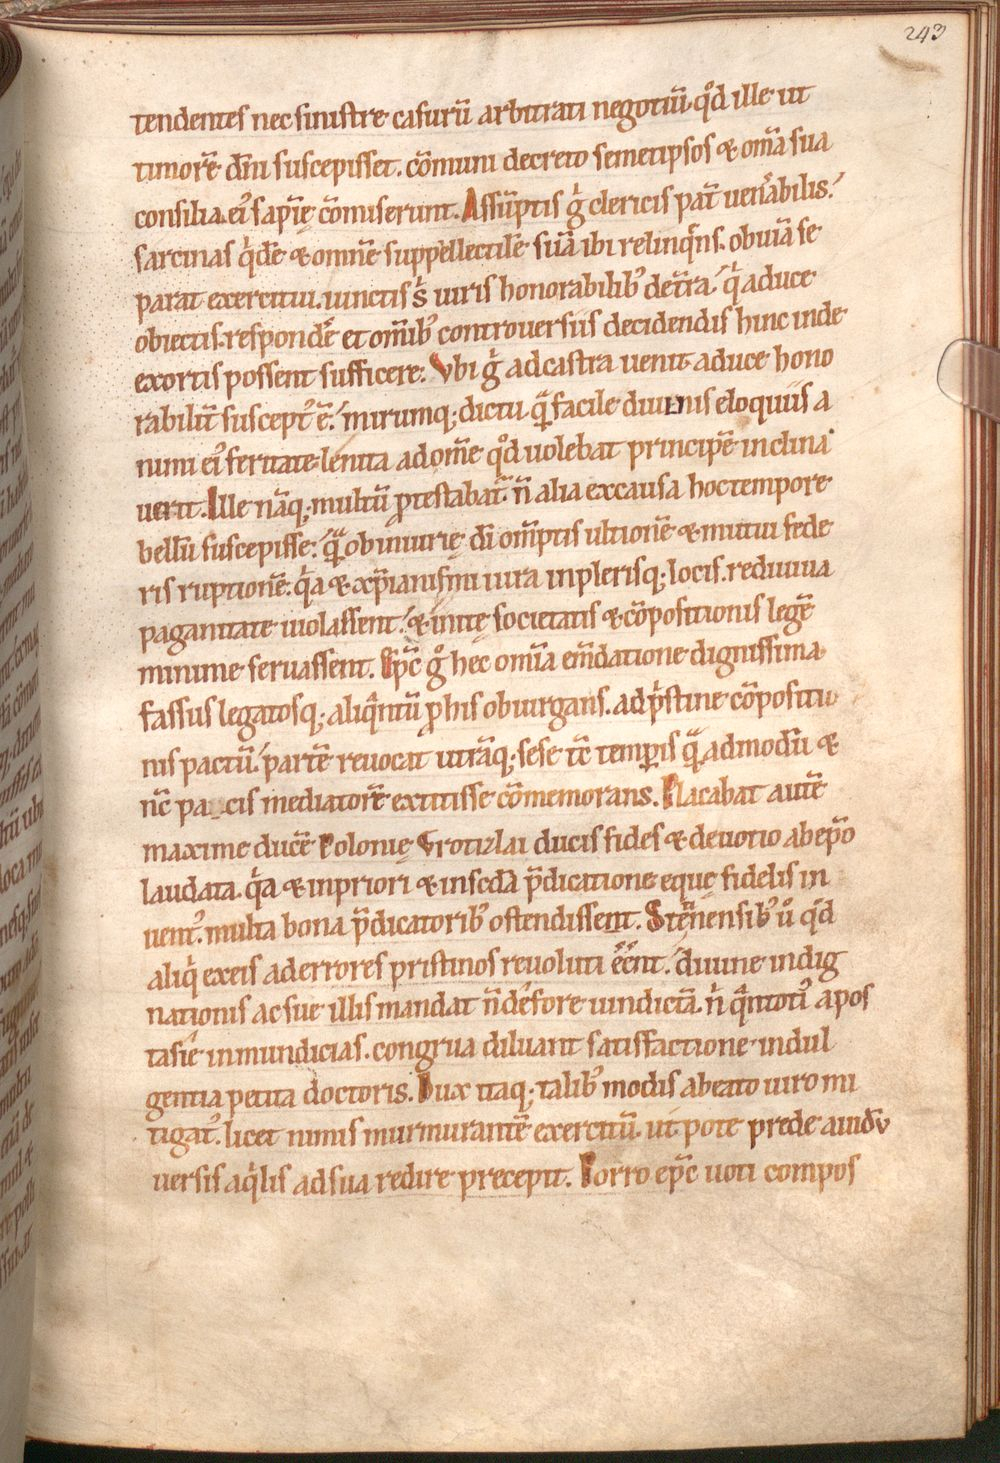 243
tendentes nec sinistre casurū arbitrati negotiū qd̊ ille ut
timorē dn̄i suscepisset. cōmuni decreto semetipsos & om̄a sua
consilia ei᾽ sapīę cōmiserunt. Assūptis g̊ clericis pat̄ uen̄abilis.᾽
sarcinas q̊dē & omnē suppellectilē suā ibi relinq̄ns. obuiā se
parat exercitui. iunctis s᾽ uiris honorabilib᾽ det̄ra.᾽ q̊ a duce
obiectis. respondē᾽ et om̄ib᾽ controuersiis decidendis hinc inde
exortis possent sufficere. Vbi g̊ ad castra uenit a duce hono
rabilit̄ suscept᾽ ē.᾽ mirumq; dictu q̄ facile diuinis eloquiis a
nimi ei᾽ feritate lenita ad om̄e qd̊ uolebat principē inclina
uerit. Ille nāq; multū p̄testabat᾽ n̄ alia ex causa hoc tempore
bellū suscepisse.᾽ q̄ ob iniurię dī om̄ptis ultionē & mutui fede
ris ruptionē. q̊a & xp̄ianismi iura in plerisq; locis. rediuiua
paganitate uiolassent.᾽ & initę societatis & cōpositionis legē
minime seruassent. Ep̄c g̊ hec om̄ia em̄datione dignissima
fassus legatosq; aliq̄ntū p̄ his obiurgans. ad p᾽stine cōpositio
nis pactū.᾽ partē reuocat utrāq; sese tc̄ temp̄is q̄ admodū &
nc̄ pacis mediatorē extitisse cōmemorans. Placabat autē
maxime ducē Polonię Vrotizlai ducis fides & deuotio ab ep̄o
laudata. q̊a & in priori & in sc̄da p̄dicatione eque fidelis in
uent᾽. multa bona p̄dicatorib᾽ ostendissent. Stet̄nensib᾽ u᾽ qd̊
aliq̊ ex eis ad errores pristinos reuoluti ēēnt.᾽ diuine indig
nationis ac sue illis mandat n̄ deēsore uindictā. n᾽ q̄ntoti᾽ apos
tasię inmundicias. congrua diluant satisfactione indul
gentia petita doctoris. Dux itaq; talib᾽ modis a beato uiro mi
tigat᾽. licet nimis murmurantē exercitū. ut pote prede auidū
uersis aq̊lis ad sua redire precepit. Porro ep̄c uoti compos